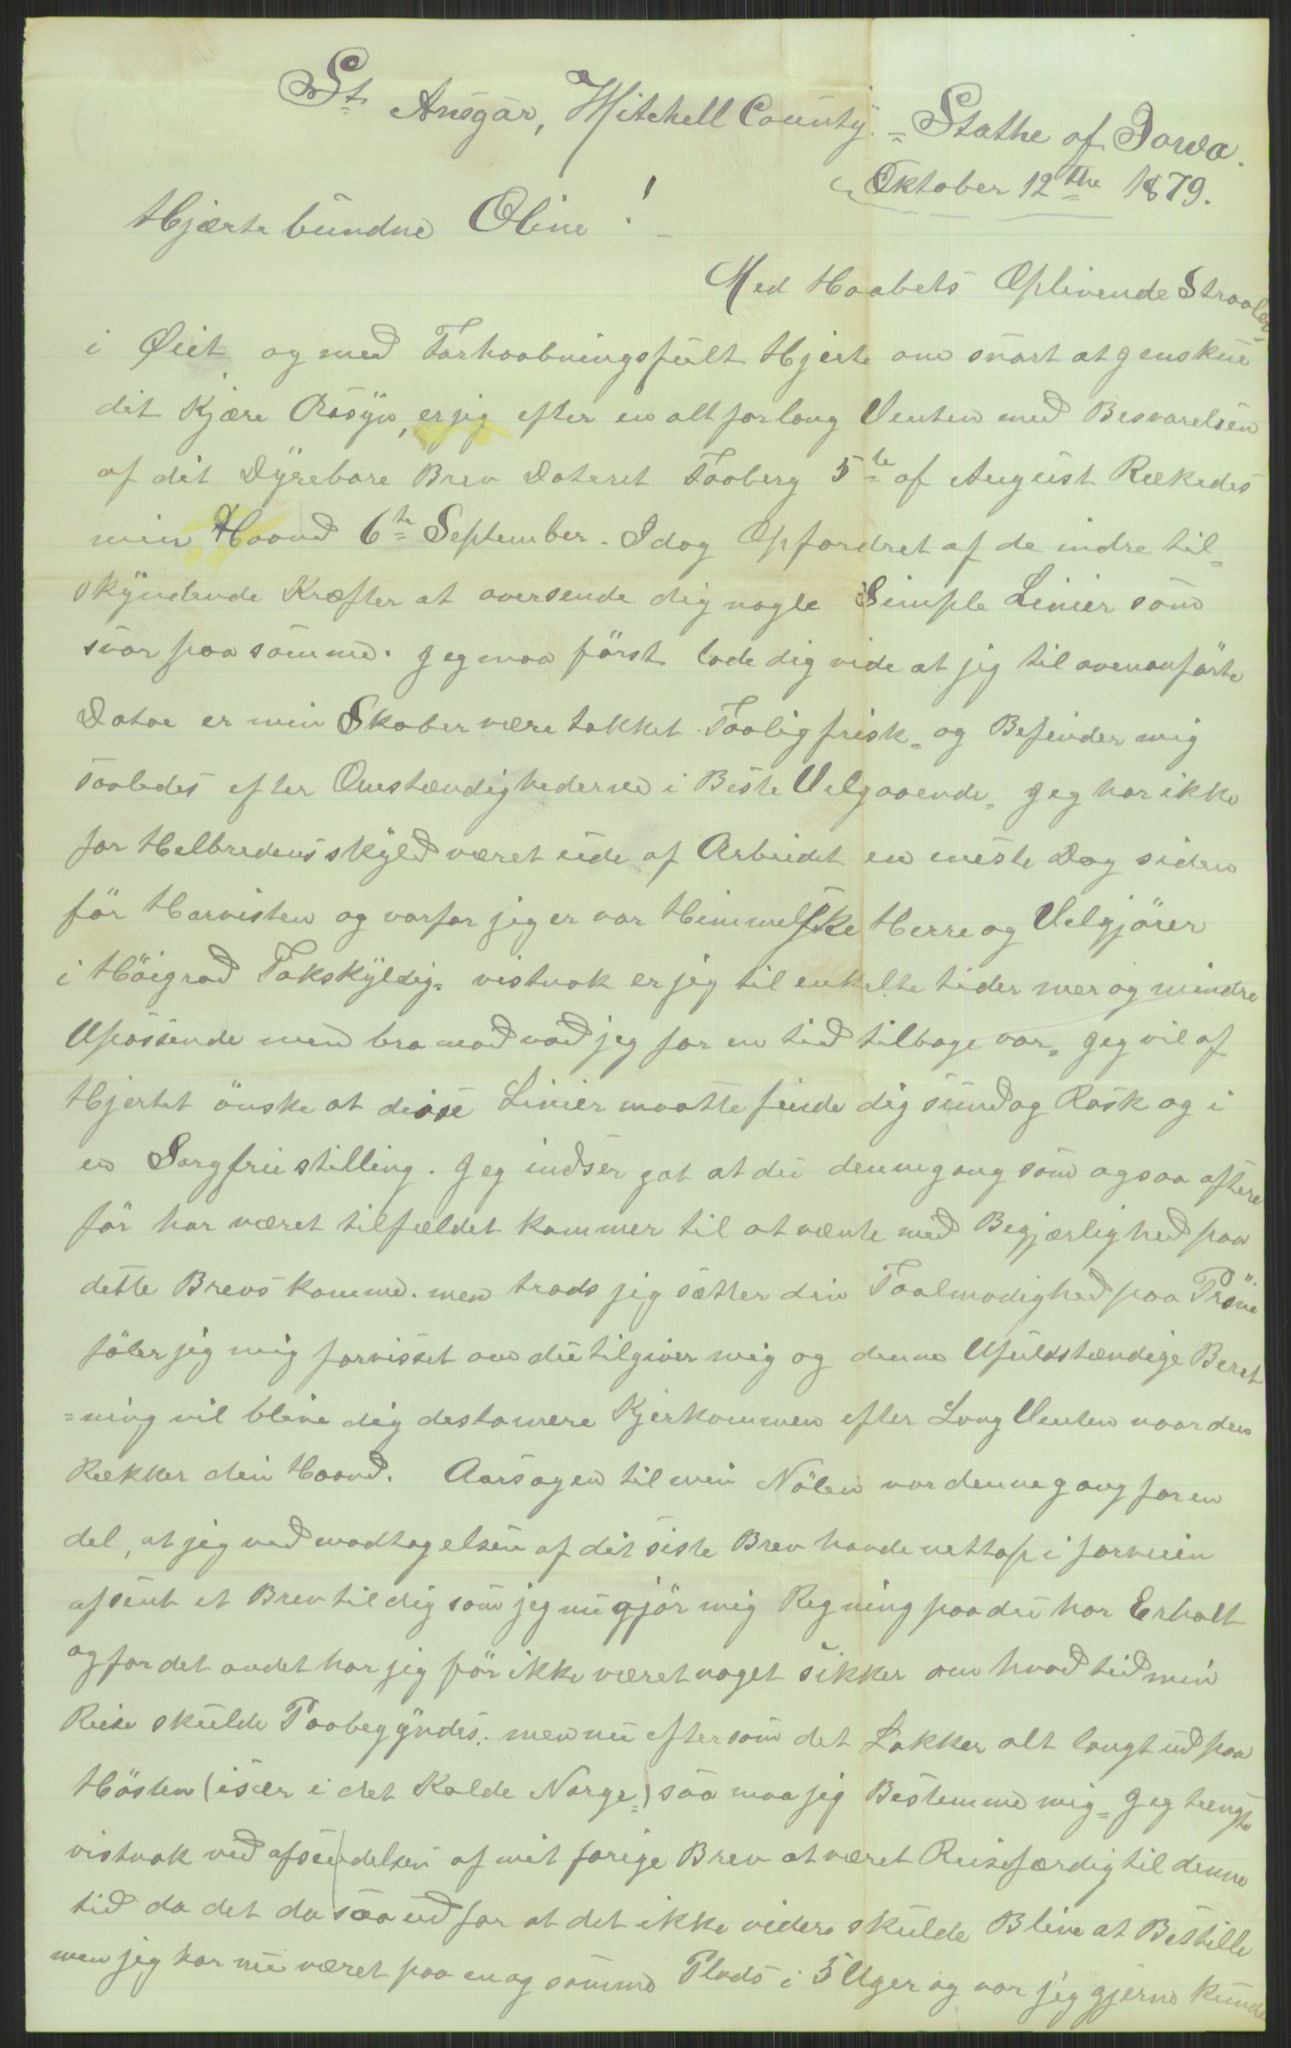 St. Ansgar, Mitchell County. = Stathe of Iowa.
Oktober 12the 1879.
Hjærtebundne Oline! -
Med Haabets Oplivende Straaler
i Øiet og med Forhaabningsfult Hjerte om snart at genskue
dit Kjære Aasyn, er jeg efter en alt for lang Venten med Besvarelsen
af dit Dyrebare Brev Dateret Faaberg 5te of August Rækedes
min Haand 6te September - Idag Opfordret af de indre til=
skyndende Kræfter at oversende dig nogle Simple Linier som
svar paa samme. Jeg maa först lade dig vide at jeg til ovenanförte
Datoe er min Skaber være takket Taalig frisk = og Befinder mig
saaledes efter Omstændighederne i Beste Velgaaende = Jeg har ikke
for Helbredens skyld været ude af Arbeidet en eneste Dag siden
för Harvisten og varfor jeg er vor Himmelske Herre og Velgjörer
i Höigrad Takskyldig. vistnok er jeg til enkelte tider mer og mindre
Upassende men bra mod vad jeg for en tid tilbage var = Jeg vil af
Hjertet önske at disse Linier maatte finde dig sund og Rask og i
en Sorgfrie stilling. Jeg indser got at du dennegang som ogsaa oftere
för har været tilfældet kommer til at vænte med Begjærlighed paa
dette Brevs komme. men trods jeg sætter din Taalmodighed paa Pröve
föler jeg mig forvisset om du tilgiver mig og denne Ufuldstændige Beret
=ning vil blive dig destomere Kjerkommen efter Lang Venten naar den
Rækker din Haand. Aarsagen til min Nölen var dennegang for en
del, at jeg ved modtagelsen af dit siste Brev havde nettop i forveien
afsent et Brev til dig som jeg nu gjör mig Regning paa du har Erholt
og for det andet har jeg för ikke været noget sikker om hvad tid min
Reise skulde Paabegyndes. men nu eftersom det Lakker alt langt ud paa
Hösten (især i det Kalde Norge =) saa maa jeg Bestemme mig = Jeg tængte
vistnok ved afsendelsen af mit forige Brev at været Reisefærdig til denne
tid da det da saa ud for at det ikke videre skulde Blive at Bestille
men jeg har nu været paa en og samme Plads i 5 Uger og vor jeg gjerne kunde